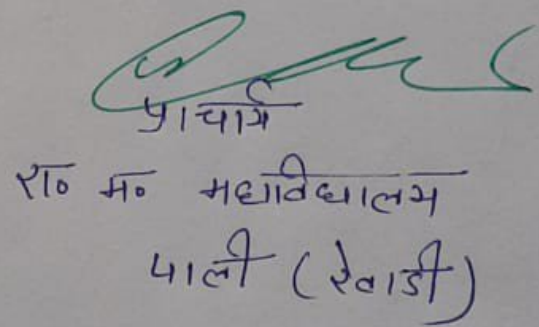 प्राचार्य
रा० म० महाविद्यालय
पाली (रेवाडी)